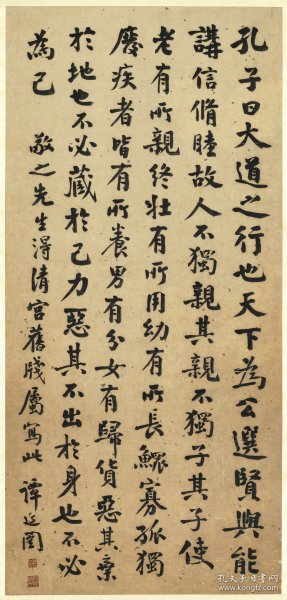 孔子曰大道之行也天下為公選賢與能
講信脩睦故人不獨親其親不獨子其子使
老有所親終壯有所用幼有所長鰥寡孤獨
廢疾者皆有所養男有分女有歸貨惡其棄
於地也不必藏於己力惡其不出於身也不必
為己 敬之先生得清宮舊牋屬寫此 譚延闓
孔夫子旧书网